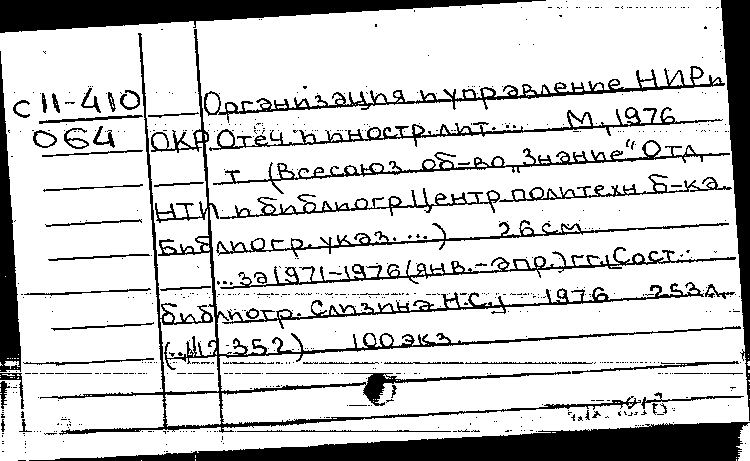 С 11-410 Организация и управление НИР и
064 ОКР Отеч. и иностр. лит. ... М., 1976
т (Всесоюз. об-во „Знание“ Отд.
НТИ и библиогр Центр. политехн. б-ка.
Библиогр. указ. ...) 26 см
... за 1971-1976 (янв.-апр.) гг. [Сост.:
библиогр. Слизина Н.С.] 1976 253 л.
(... 352) 100 экз.